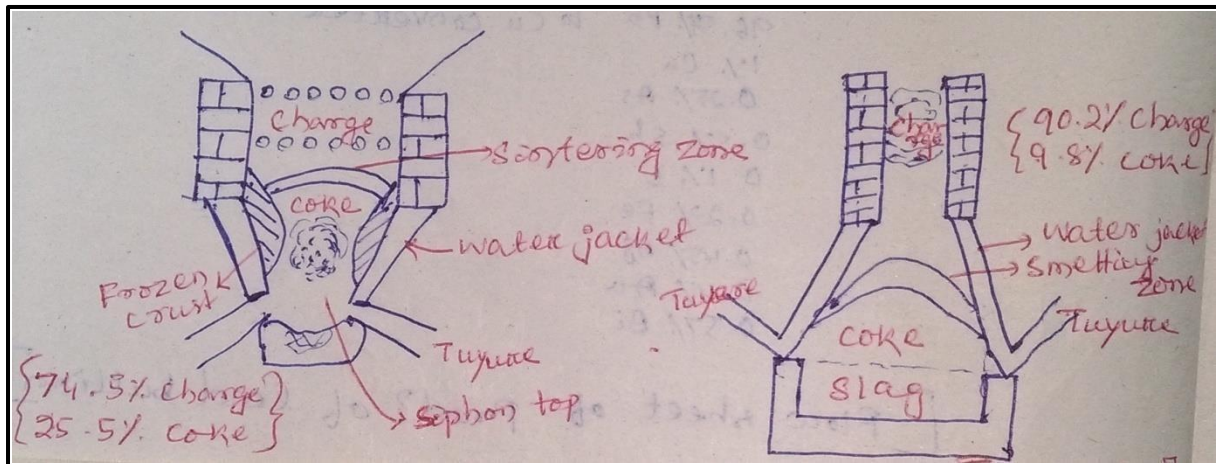 charge
Sintering zone
coke
water jacket
Frozen
crust
Tuyure
{74.5% charge}
{25.5% coke}
Siphon top
Charge
{90.2% charge}
{9.8% coke}
water jacket
smelting
zone
Tuyure
Tuyure
coke
slag